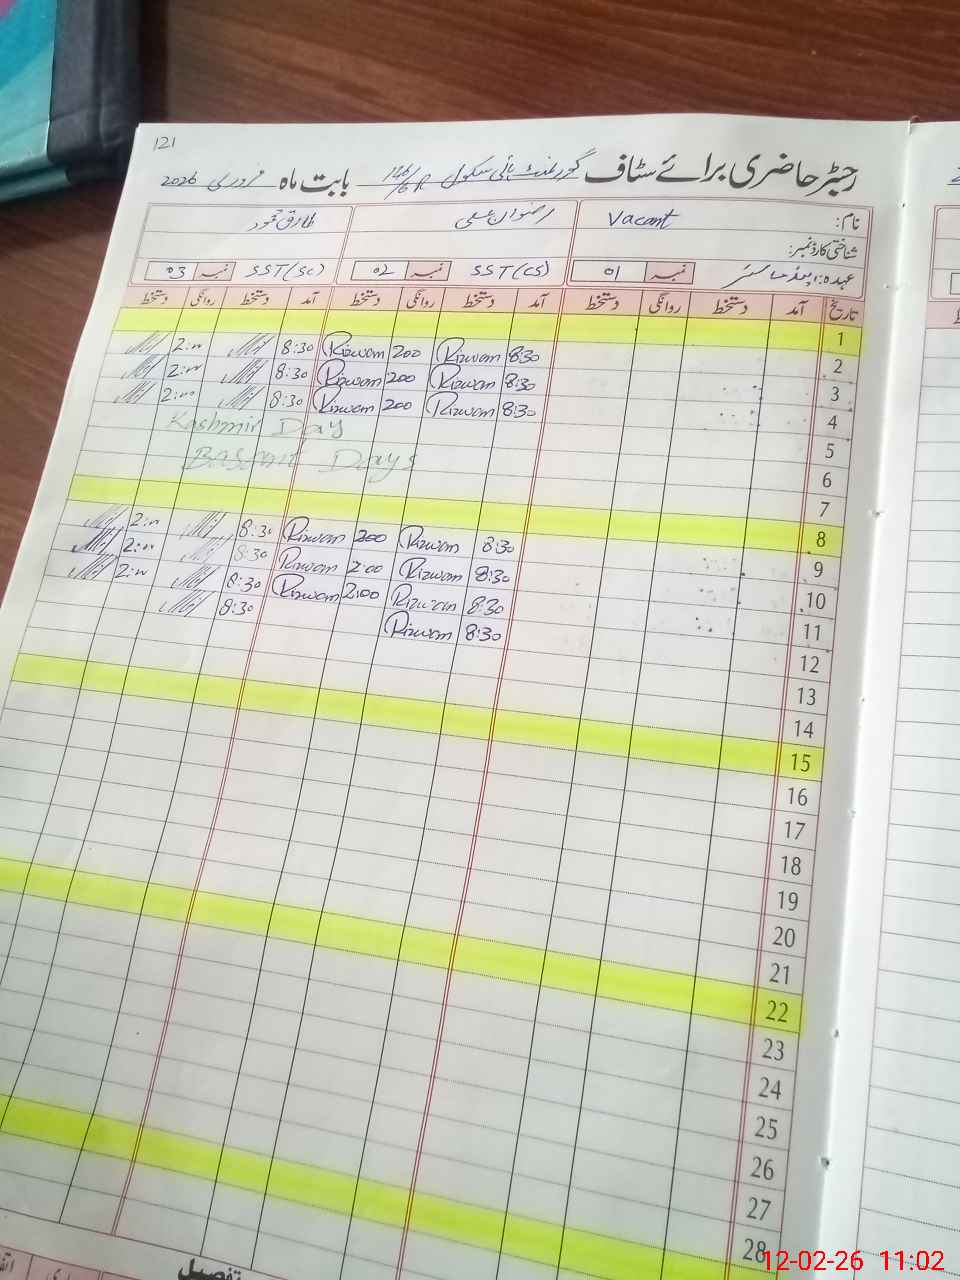 121
رجسٹر حاضری برائے سٹاف گورنمنٹ ہائی سکول 146/6R بابت ماہ فروری 2026
نام: Vacant رضوان علی طارق محمود
شناختی کارڈ نمبر:
عہدہ: نمبر 01 SST(CS) نمبر 02 SST(SC) نمبر 03
تاریخ آمد دستخط روانگی دستخط آمد دستخط روانگی دستخط آمد دستخط روانگی دستخط
1
2 8:30 Rizwan 200 Rizwan 8:30 2:00
3 8:30 Rizwan 200 Rizwan 8:30 2:00
4 8:30 Rizwan 200 Rizwan 8:30 2:00
5 Kashmir Day
6 Basant Days
7
8
9 8:30 Rizwan 200 Rizwan 8:30 2:00
10 8:30 Rizwan 2:00 Rizwan 8:30 2:00
11 8:30 Rizwan 2:00 Rizwan 8:30 2:00
12 8:30 Rizwan 8:30
13
14
15
16
17
18
19
20
21
22
23
24
25
26
27
28
تفصیل
12-02-26 11:02